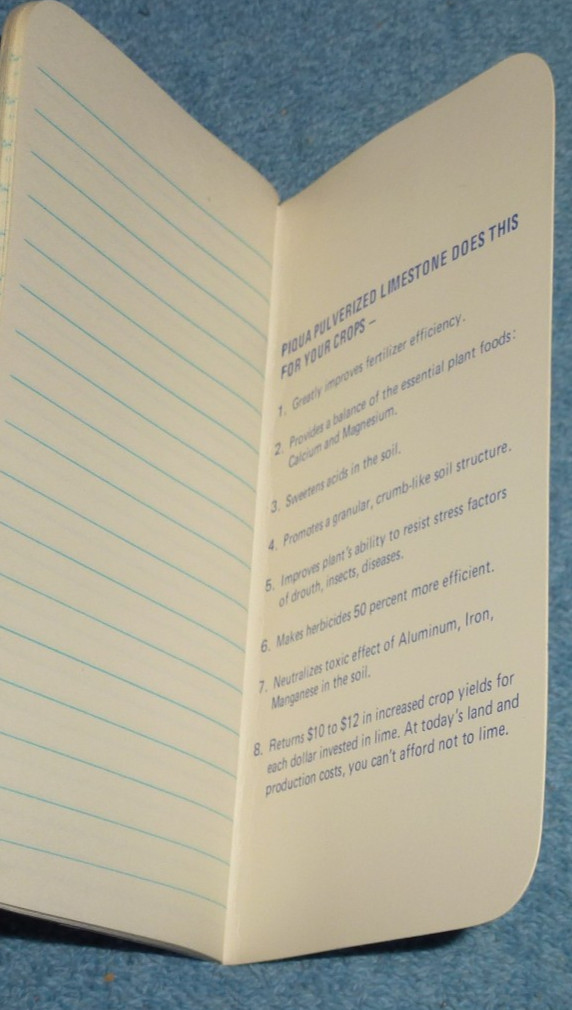 PIQUA PULVERIZED LIMESTONE DOES THIS
FOR YOUR CROPS –
1. Greatly improves fertilizer efficiency.
2. Provides a balance of the essential plant foods:
Calcium and Magnesium.
3. Sweetens acids in the soil.
4. Promotes a granular, crumb-like soil structure.
5. Improves plant's ability to resist stress factors
of drouth, insects, diseases.
6. Makes herbicides 50 percent more efficient.
7. Neutralizes toxic effect of Aluminum, Iron,
Manganese in the soil.
8. Returns $10 to $12 in increased crop yields for
each dollar invested in lime. At today's land and
production costs, you can't afford not to lime.